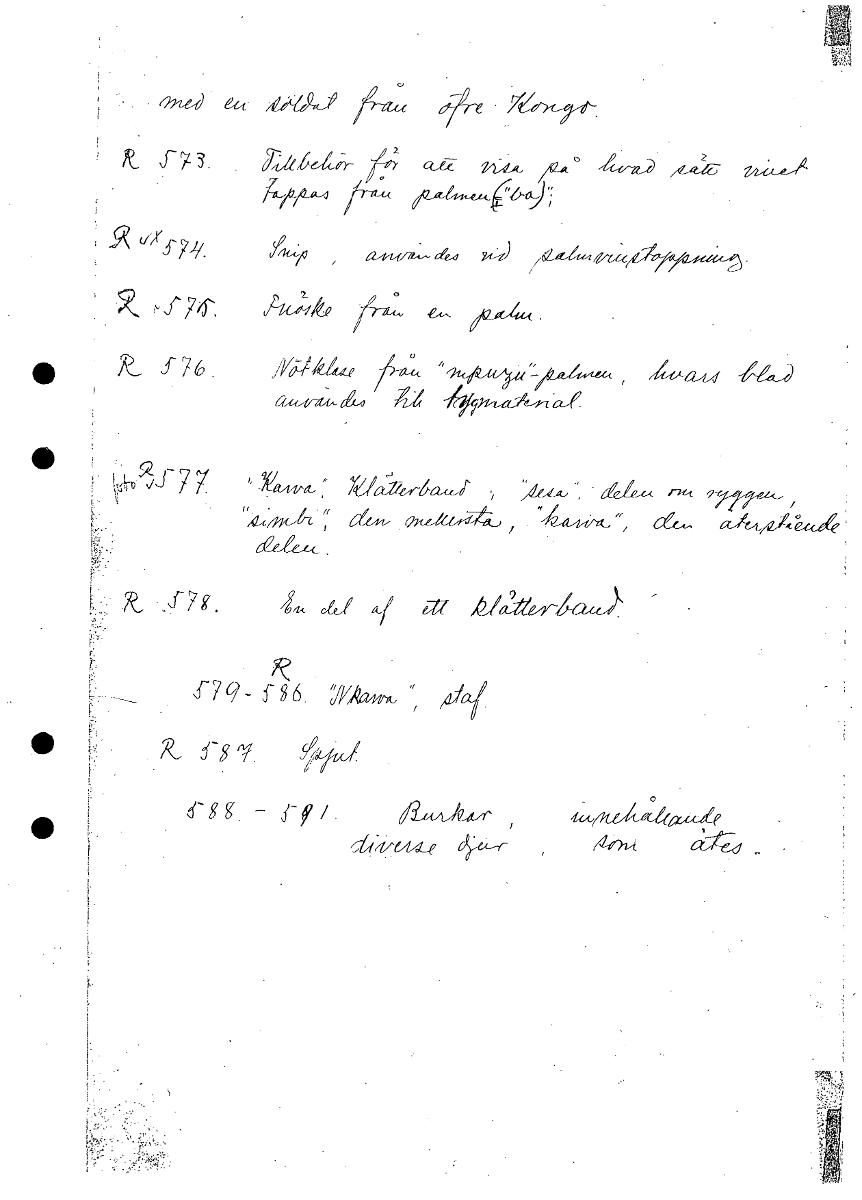 med en soldat från öfre Kongo.
R 573. Tillbehör för att visa på hvad sätt vinet
tappas från palmen ("ba)";
R vx 574. Snip, användes vid palmvinstappning.
R v 575. Fnöske från en palm.
R 576. Nötklase från "mpuzu"-palmen, hvars blad
användes till tygmaterial.
foto R v 577. "Kawa". Klätterband; "sesa", delen om ryggen,
"simbi", den mellersta, "kawa", den återstående
delen.
R 578. En del af ett klätterband.
R
579-586. "Nkawa", staf.
R 587. Spjut.
588. - 591. Burkar, innehållande
diverse djur, som ätes.